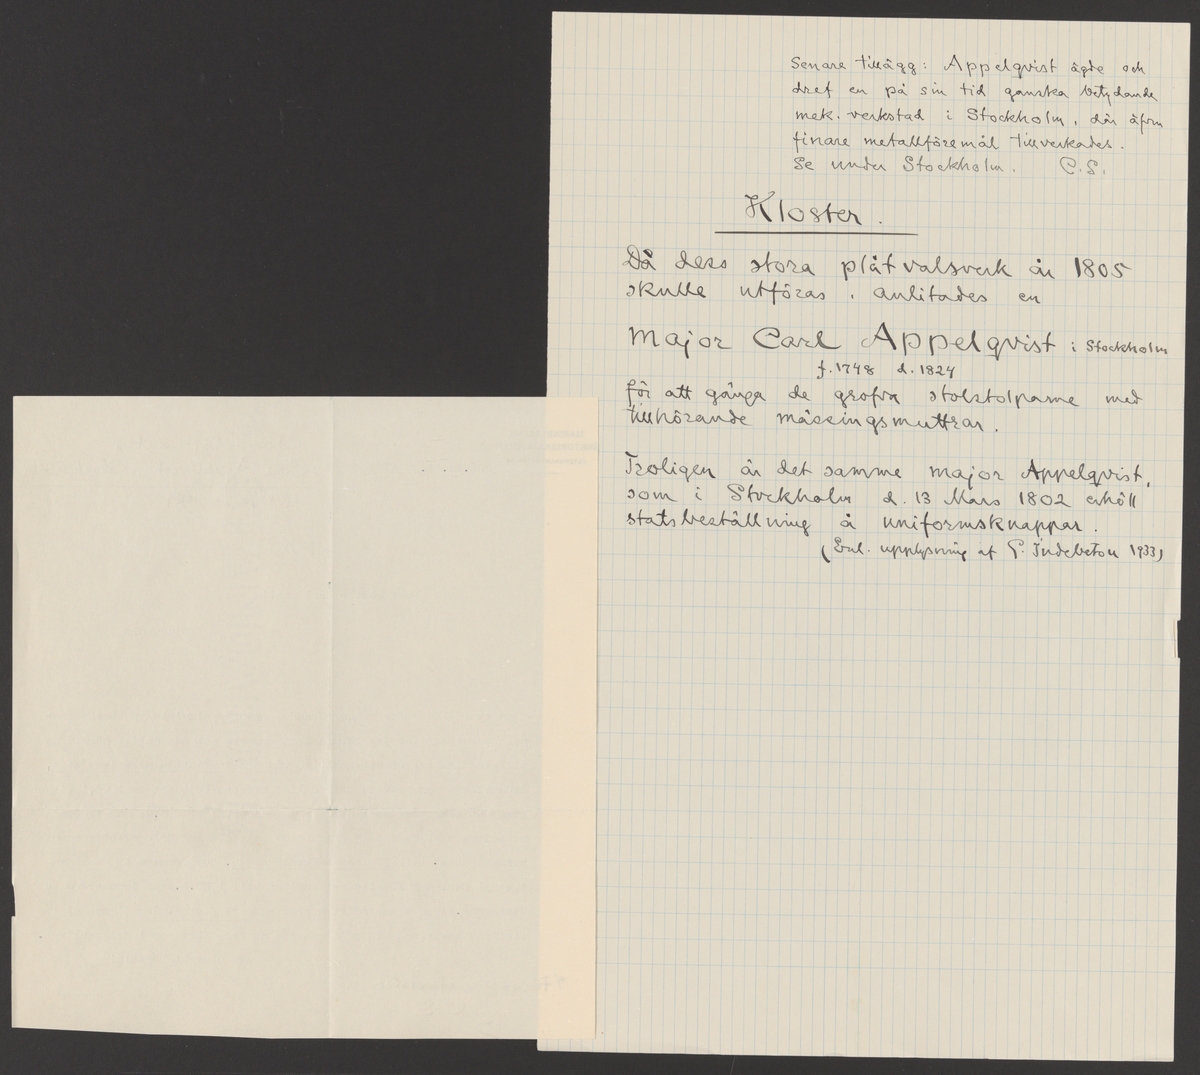 Senare tillägg: Appelqvist ägde och
dref en på sin tid ganska betydande
mek. verkstad i Stockholm, där äfven
finare metallföremål tillverkades.
Se under Stockholm. C.S.
Kloster.
Då dess stora plåtvalsverk år 1805
skulle utföras, anlitades en
major Carl Appelqvist i Stockholm
f. 1748 d. 1824
för att gänga de grofva stolstolparne med
tillhörande mässingsmuttrar.
Troligen är det samme major Appelqvist,
som i Stockholm d. 13 Mars 1802 erhöll
statsbeställning å uniformsknappar.
(Enl. upplysning af G. Indebetou 1933)